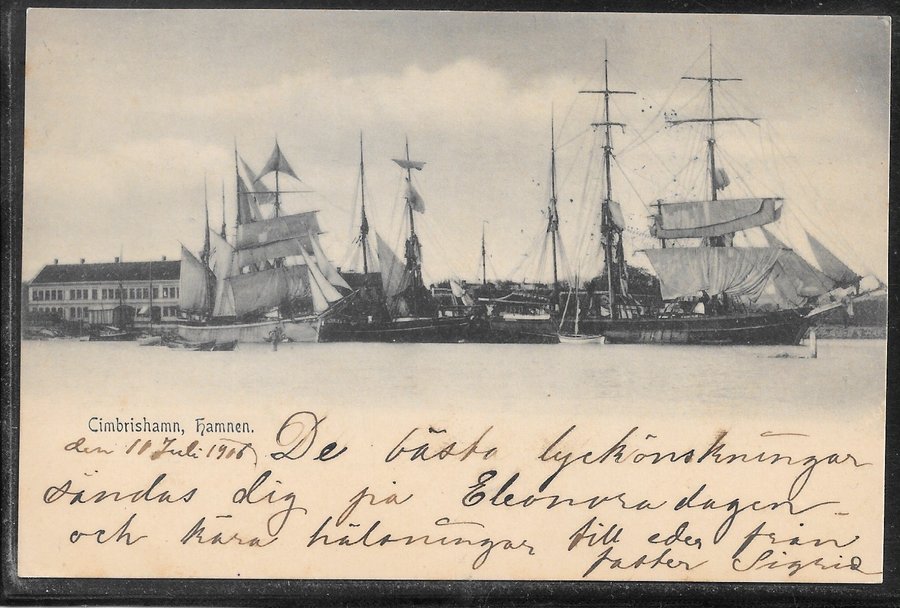 Cimbrishamn, Hamnen.
den 10 Juli 1906 De bästa lyckönskningar
sändas dig på Eleonoradagen
och kära hälsningar till eder från
faster Sigrid